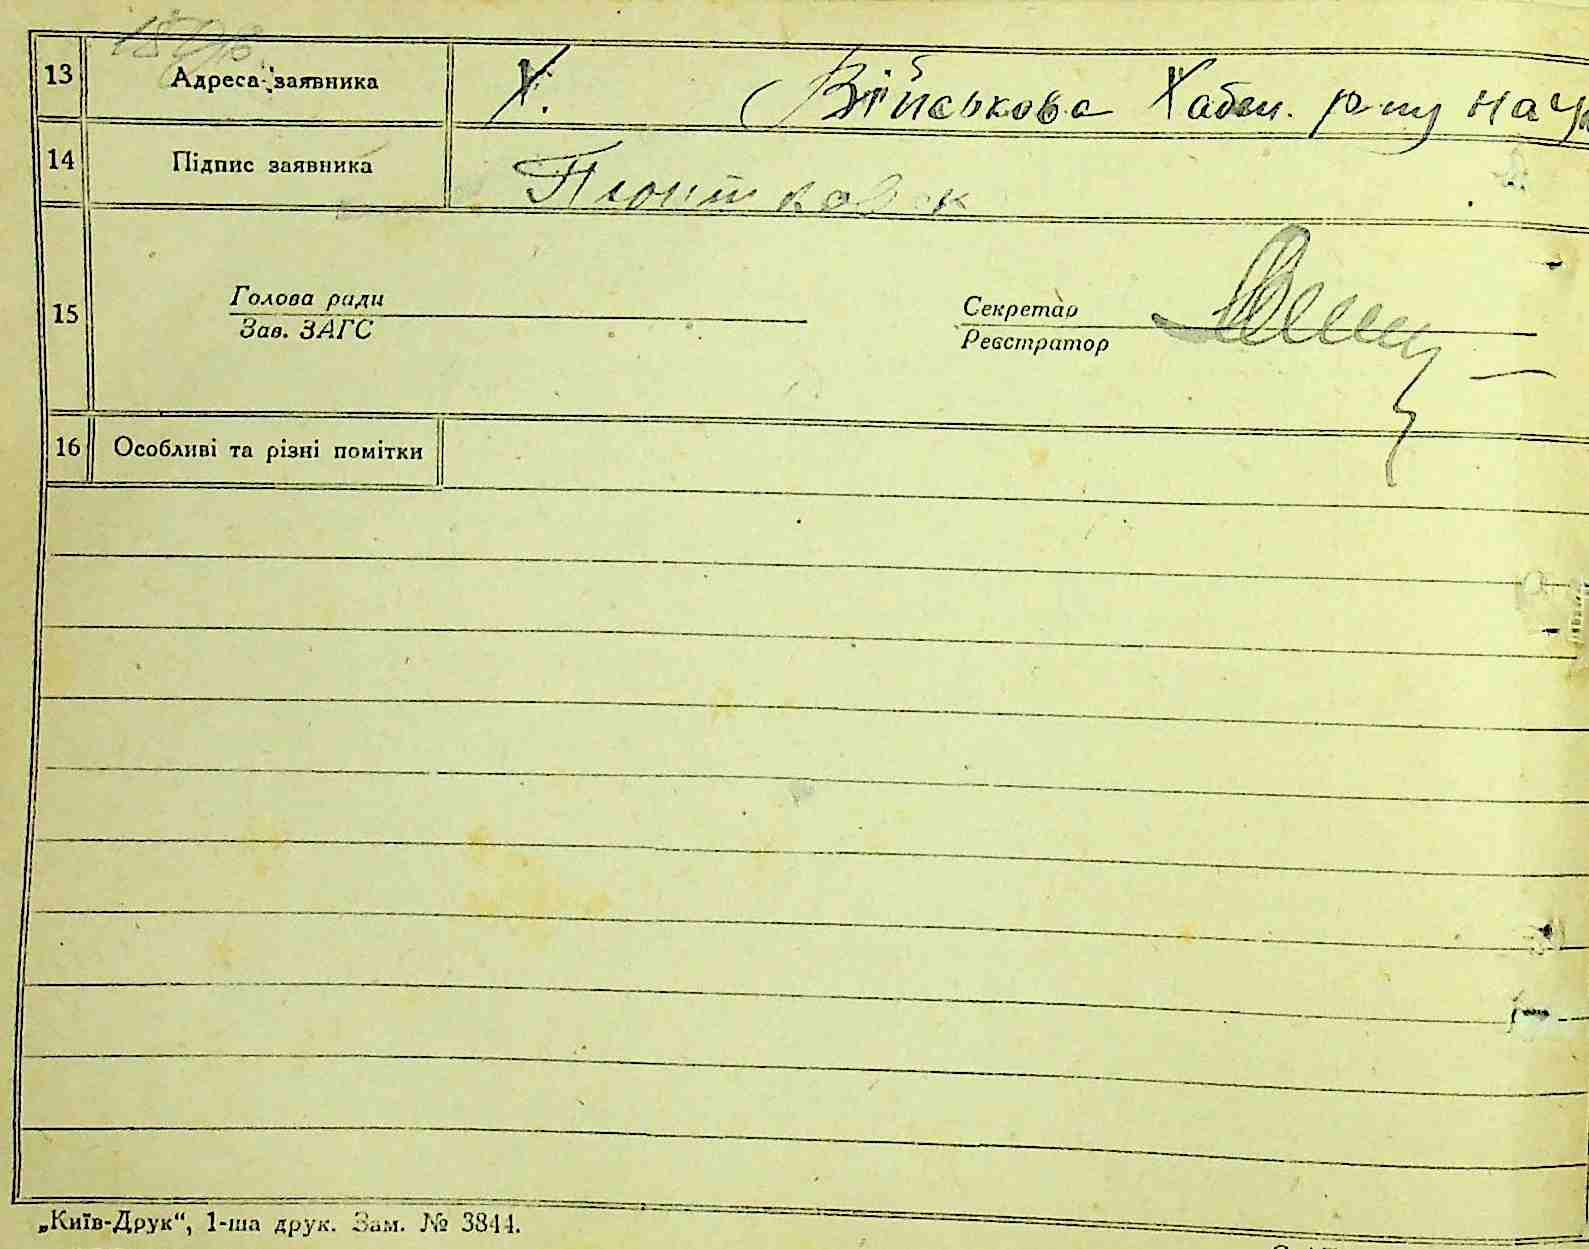 13 Адреса заявника Х. Військова Хабен. р-ну
14 Підпис заявника
Голова ради Секретар
15
Зав. ЗАГС Реєстратор
16 Особливі та різні помітки
„Київ-Друк“, 1-ша друк. Зам. № 3844.